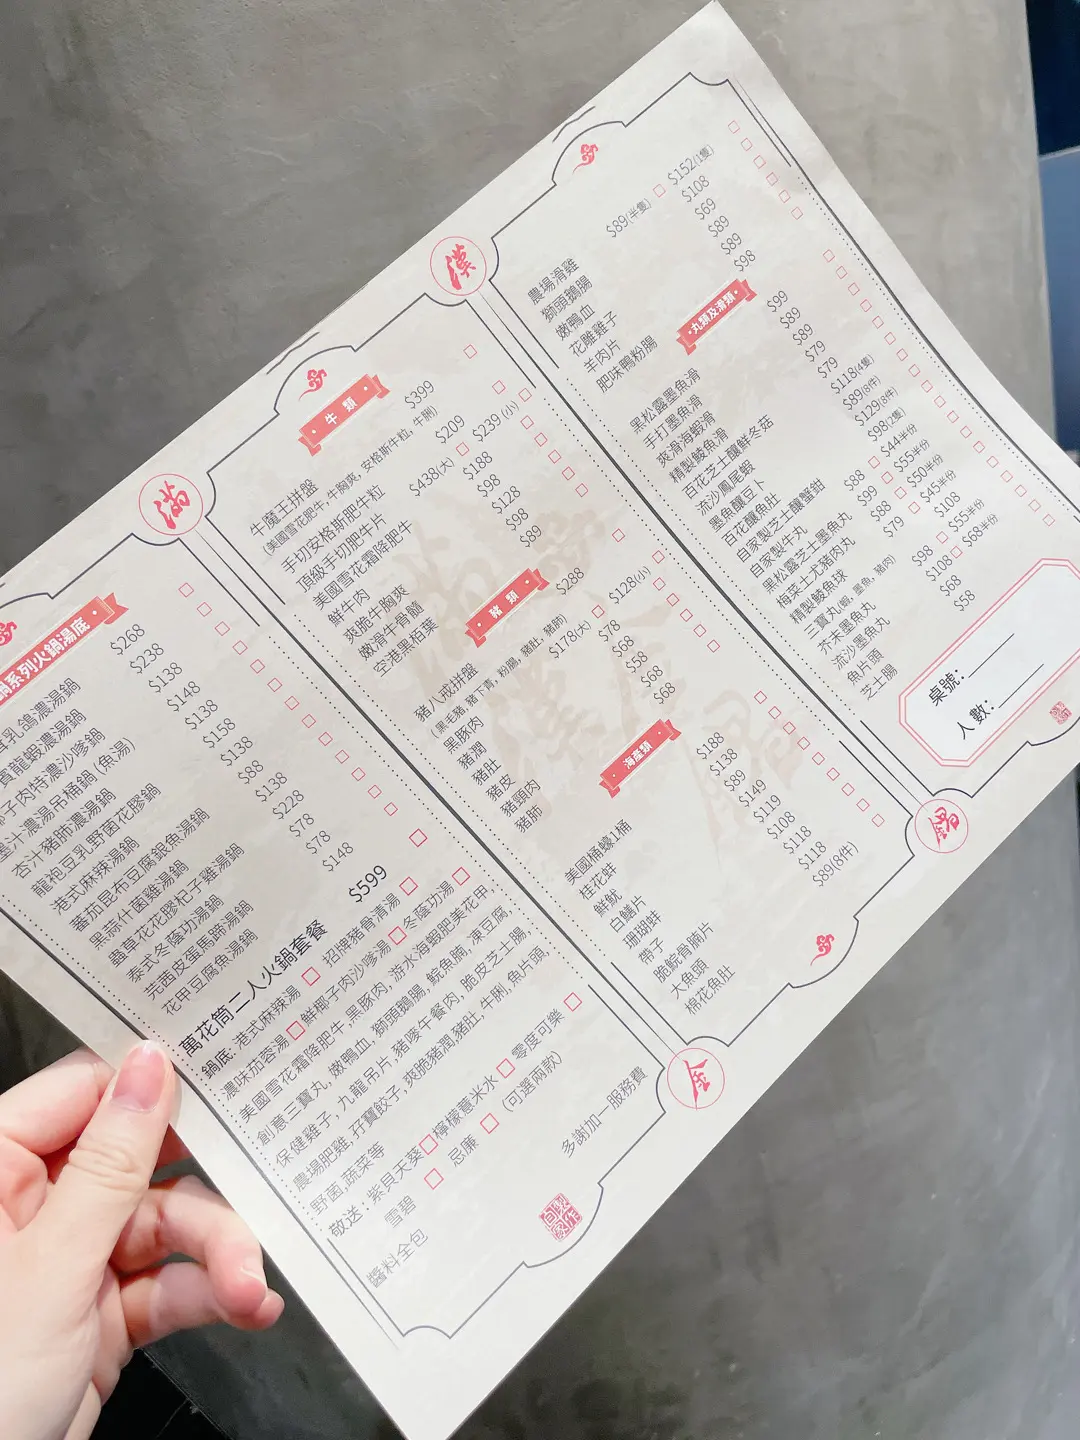 滿
漢
金
宴
鍋系列火鍋湯底
乳鴿濃湯鍋 $268
龍蝦濃湯鍋 $238
椰子肉特濃沙嗲鍋 $138
墨汁濃湯吊桶鍋(魚湯) $148
杏汁豬肺濃湯鍋 $138
龍袍豆乳野菌花膠鍋 $158
港式麻辣湯鍋 $138
蕃茄昆布豆腐銀魚湯鍋 $88
黑蒜什菌雞湯鍋 $138
蟲草花花膠杞子雞湯鍋 $228
泰式冬蔭功湯鍋 $78
芫茜皮蛋馬蹄湯鍋 $78
花甲豆腐魚湯鍋 $148
萬花筒二人火鍋套餐 $599
鍋底: 港式麻辣湯 招牌豬骨清湯
濃味茄蓉湯 鮮椰子肉沙嗲湯 冬蔭功湯
美國雪花霜降肥牛,黑豚肉,游水海蝦肥美花甲,
創意三寶丸,嫩鴨血,獅頭鵝腸,鯇魚腩,凍豆腐,
保健雞子,九龍吊片,豬嘜午餐肉,脆皮芝士腸,
農場肥雞,孖寶餃子,爽脆豬潤,豬肚,牛脷,魚片頭,
野菌,蔬菜等
敬送: 紫貝天葵 檸檬薏米水 零度可樂
雪碧 忌廉 (可選兩款)
醬料全包
多謝加一服務費
牛類
牛魔王拼盤 $399
(美國雪花肥牛,牛胸爽,安格斯牛粒,牛脷)
手切安格斯肥牛粒 $209
頂級手切肥牛片 $438(大) $239(小)
美國雪花霜降肥牛 $188
鮮牛肉 $98
爽脆牛胸爽 $128
嫩滑牛骨髓 $98
空港黑栢葉 $89
豬類
豬八戒拼盤 $288
(黑毛豬,豬下青,粉腸,豬肚,豬肺)
黑豚肉 $178(大) $128(小)
豬潤 $78
豬肚 $68
豬皮 $58
豬頸肉 $68
豬肺 $68
海產類
美國桶蠔1桶 $188
桂花蚌 $138
鮮魷 $89
白鱔片 $149
珊瑚蚌 $119
帶子 $108
脆鯇骨腩片 $118
大魚頭 $118
棉花魚肚 $89(8件)
農場滑雞 $89(半隻) $152(1隻)
獅頭鵝腸 $108
嫩鴨血 $69
花雕雞子 $89
羊肉片 $89
肥味鴨粉腸 $98
丸類及滑類
黑松露墨魚滑 $99
手打墨魚滑 $89
爽滑海蝦滑 $89
精製鯪魚滑 $79
百花芝士釀鮮冬菇 $79
流沙鳳尾蝦 $118(4隻)
墨魚釀豆卜 $89(8件)
百花釀魚肚 $129(8件)
自家製芝士釀蟹鉗 $98(2隻)
自家製牛丸 $88 $44半份
黑松露芝士墨魚丸 $99 $55半份
梅菜土尤豬肉丸 $88 $50半份
精製鯪魚球 $79 $45半份
三寶丸(蝦,墨魚,豬肉) $108
芥末墨魚丸 $98 $55半份
流沙墨魚丸 $108 $68半份
魚片頭 $68
芝士腸 $58
桌號:
人數: